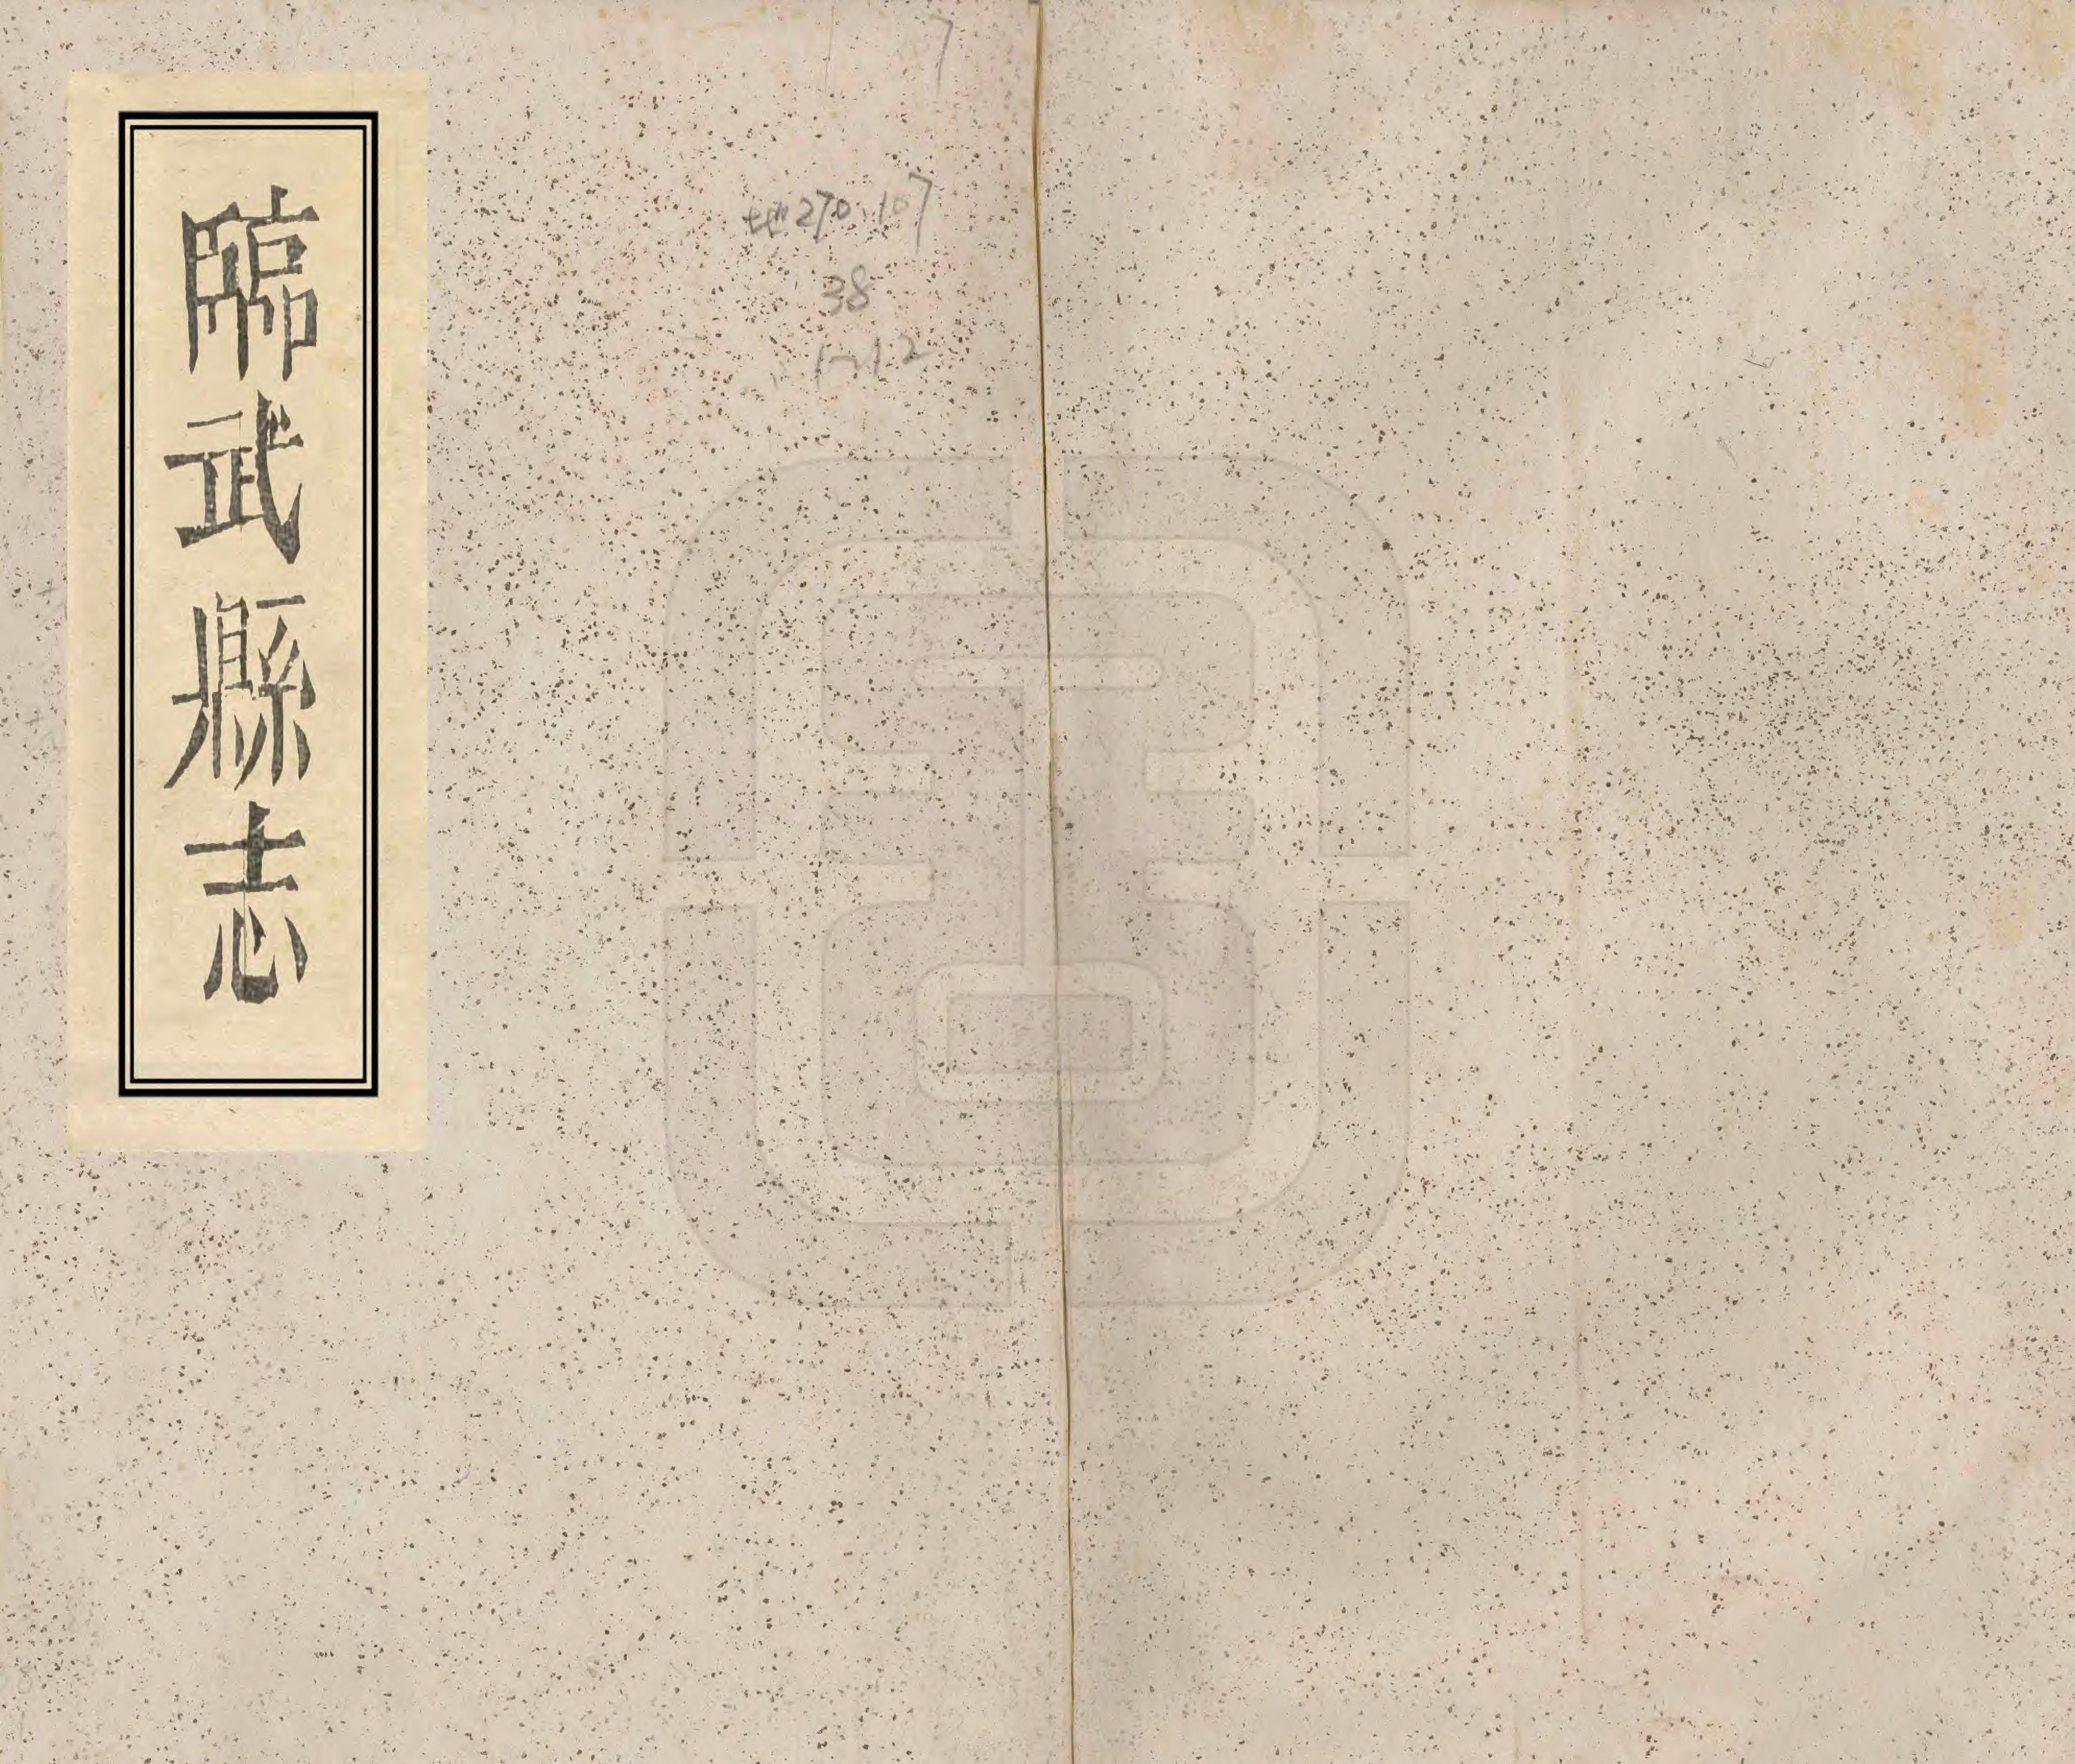 臨武縣志
7
地270.107
38
1~12